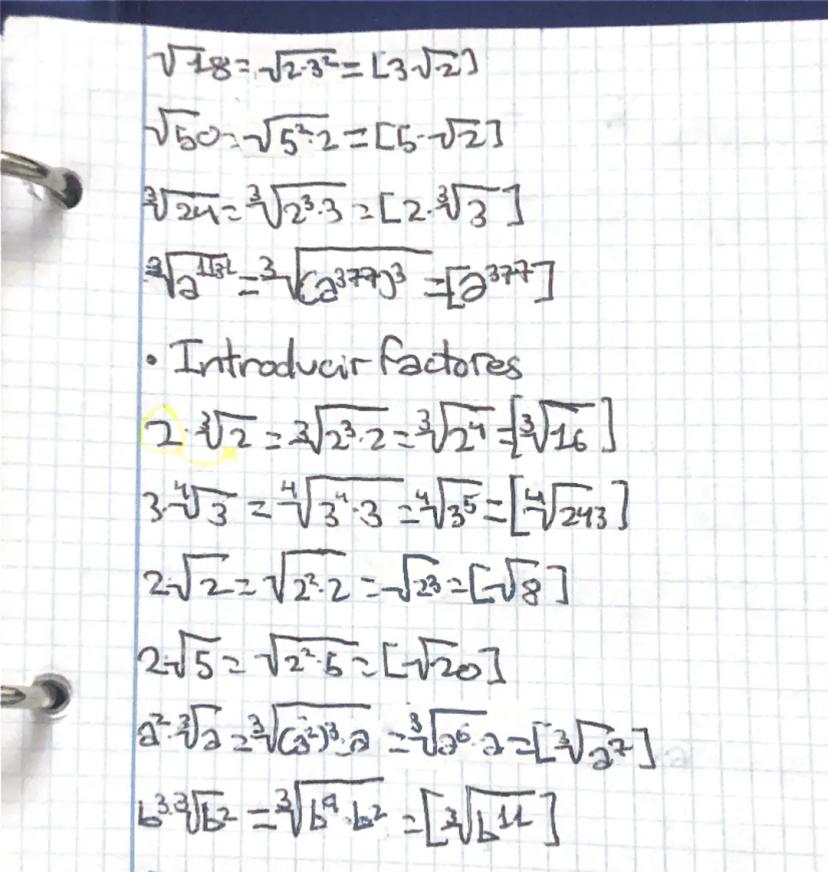 √18 = √2·3² = [3·√2]
√50 = √5²·2 = [5·√2]
³√24 = ³√2³·3 = [2·³√3]
³√a¹¹³¹ = ³√(a³⁷⁷)³ = [a³⁷⁷]
• Introducir factores
2·³√2 = ³√2³·2 = ³√2⁴ = [³√16]
3·⁴√3 = ⁴√3⁴·3 = ⁴√3⁵ = [⁴√243]
2·√2 = √2²·2 = √2³ = [√8]
2·√5 = √2²·5 = [√20]
a²·³√a = ³√(a²)³·a = ³√a⁶·a = [³√a⁷]
b³·³√b² = ³√b⁹·b² = [³√b¹¹]